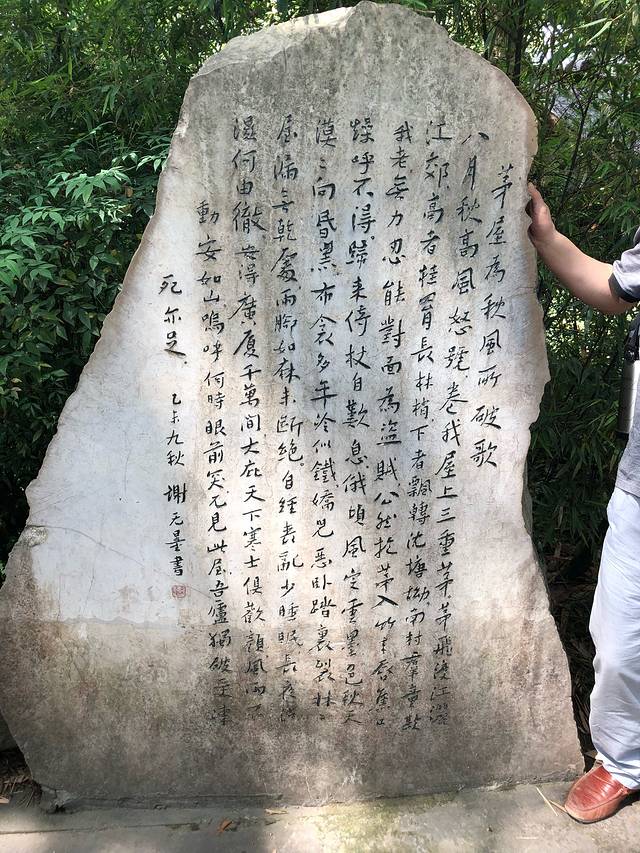 茅屋為秋風所破歌
八月秋高風怒號卷我屋上三重茅茅飛渡江灑
江郊高者挂罥長林梢下者飄轉沈塘坳南村羣童欺
我老無力忍能對面為盜賊公然抱茅入竹去唇焦口
燥呼不得歸來倚杖自歎息俄頃風定雲墨色秋天
漠〻向昏黑布衾多年冷似鐵嬌兒惡臥踏裏裂牀〻
屋漏無乾處雨腳如麻未斷絕自經喪亂少睡眠長夜沾
濕何由徹安得廣廈千萬間大庇天下寒士俱歡顏風雨不
動安如山嗚呼何時眼前突兀見此屋吾廬獨破受凍
死亦足
乙未九秋 謝无量書